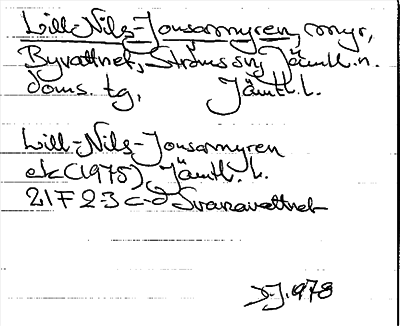 Lill-Nils-Jonsamyren, myr,
Byvattnet, Ströms sn, Jämtl. n.
doms. tg, Jämtl. L.
Lill-Nils-Jonsamyren
ek (1978) Jämtl. L.
21F 2-3 c-d Svanavattnet
1978